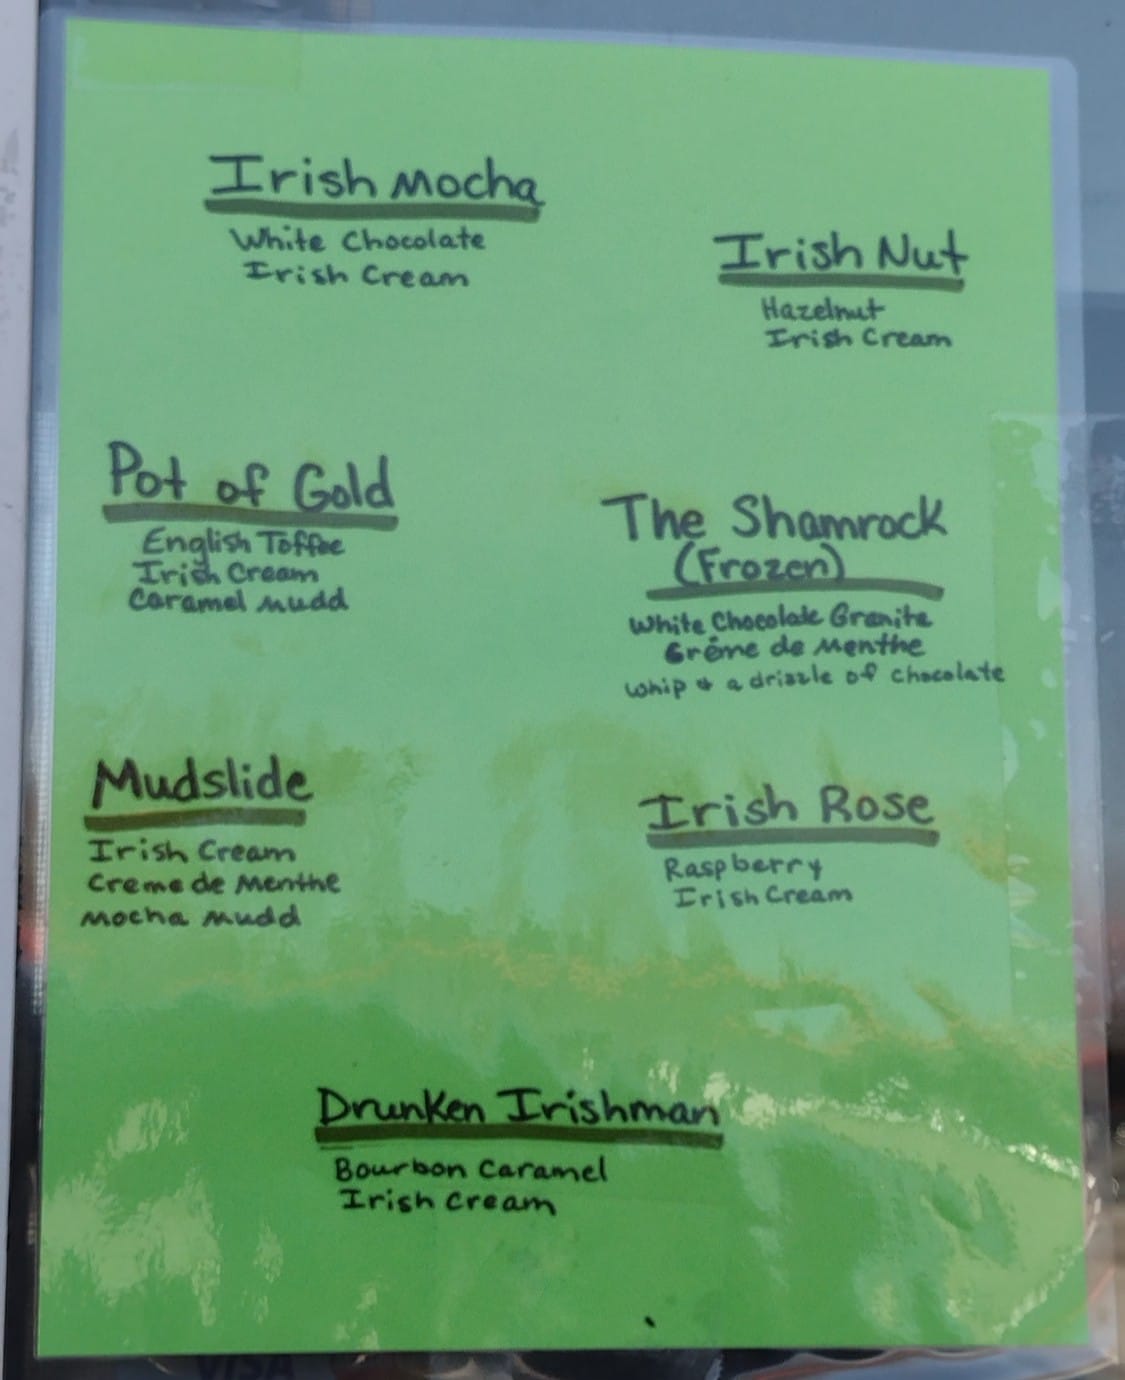 Irish Mocha
White Chocolate
Irish Cream
Irish Nut
Hazelnut
Irish Cream
Pot of Gold
English Toffee
Irish Cream
Caramel Mudd
The Shamrock
(Frozen)
White Chocolate Granita
Crème de Menthe
Whip & a drizzle of chocolate
Mudslide
Irish Cream
Creme de Menthe
Mocha Mudd
Irish Rose
Raspberry
Irish Cream
Drunken Irishman
Bourbon Caramel
Irish Cream
VISA